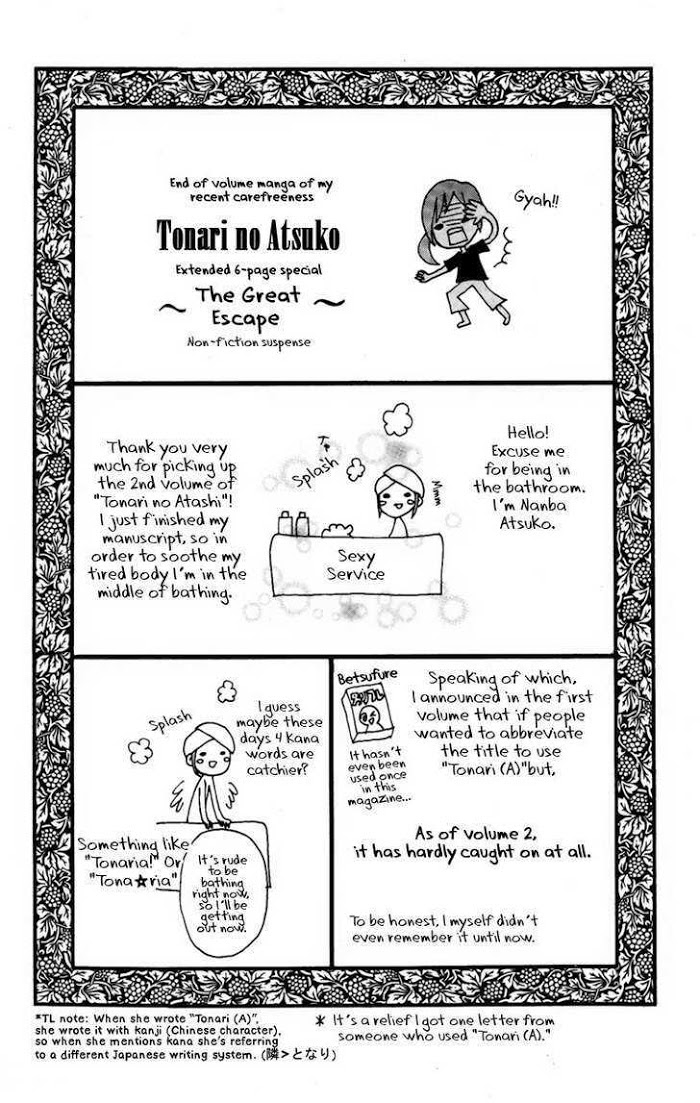 End of volume manga of my
recent carefreeness
Tonari no Atsuko
Extended 6-page special
~ The Great ~
Escape
Non-fiction suspense
Gyah!!
Hello!
Excuse me
for being in
the bathroom.
I'm Nanba
Atsuko.
Splash
Mmm
Sexy
Service
Thank you very
much for picking up
the 2nd volume of
"Tonari no Atashi"!
I just finished my
manuscript, so in
order to soothe my
tired body I'm in the
middle of bathing.
Speaking of which,
I announced in the first
volume that if people
wanted to abbreviate
the title to use
"Tonari (A)"but,
Betsufure
It hasn't
even been
used once
in this
magazine...
As of volume 2,
it has hardly caught on at all.
To be honest, I myself didn't
even remember it until now.
Splash
I guess
maybe these
days 4 Kana
words are
catchier?
Something like
"Tonaria!" Or
"Tona★ria"
It's rude
to be
bathing
right now,
so I'll be
getting
out now.
*TL note: When she wrote "Tonari (A)",
she wrote it with kanji (Chinese character),
so when she mentions kana she's referring
to a different Japanese writing system. (隣>となり)
* It's a relief I got one letter from
someone who used "Tonari (A)."